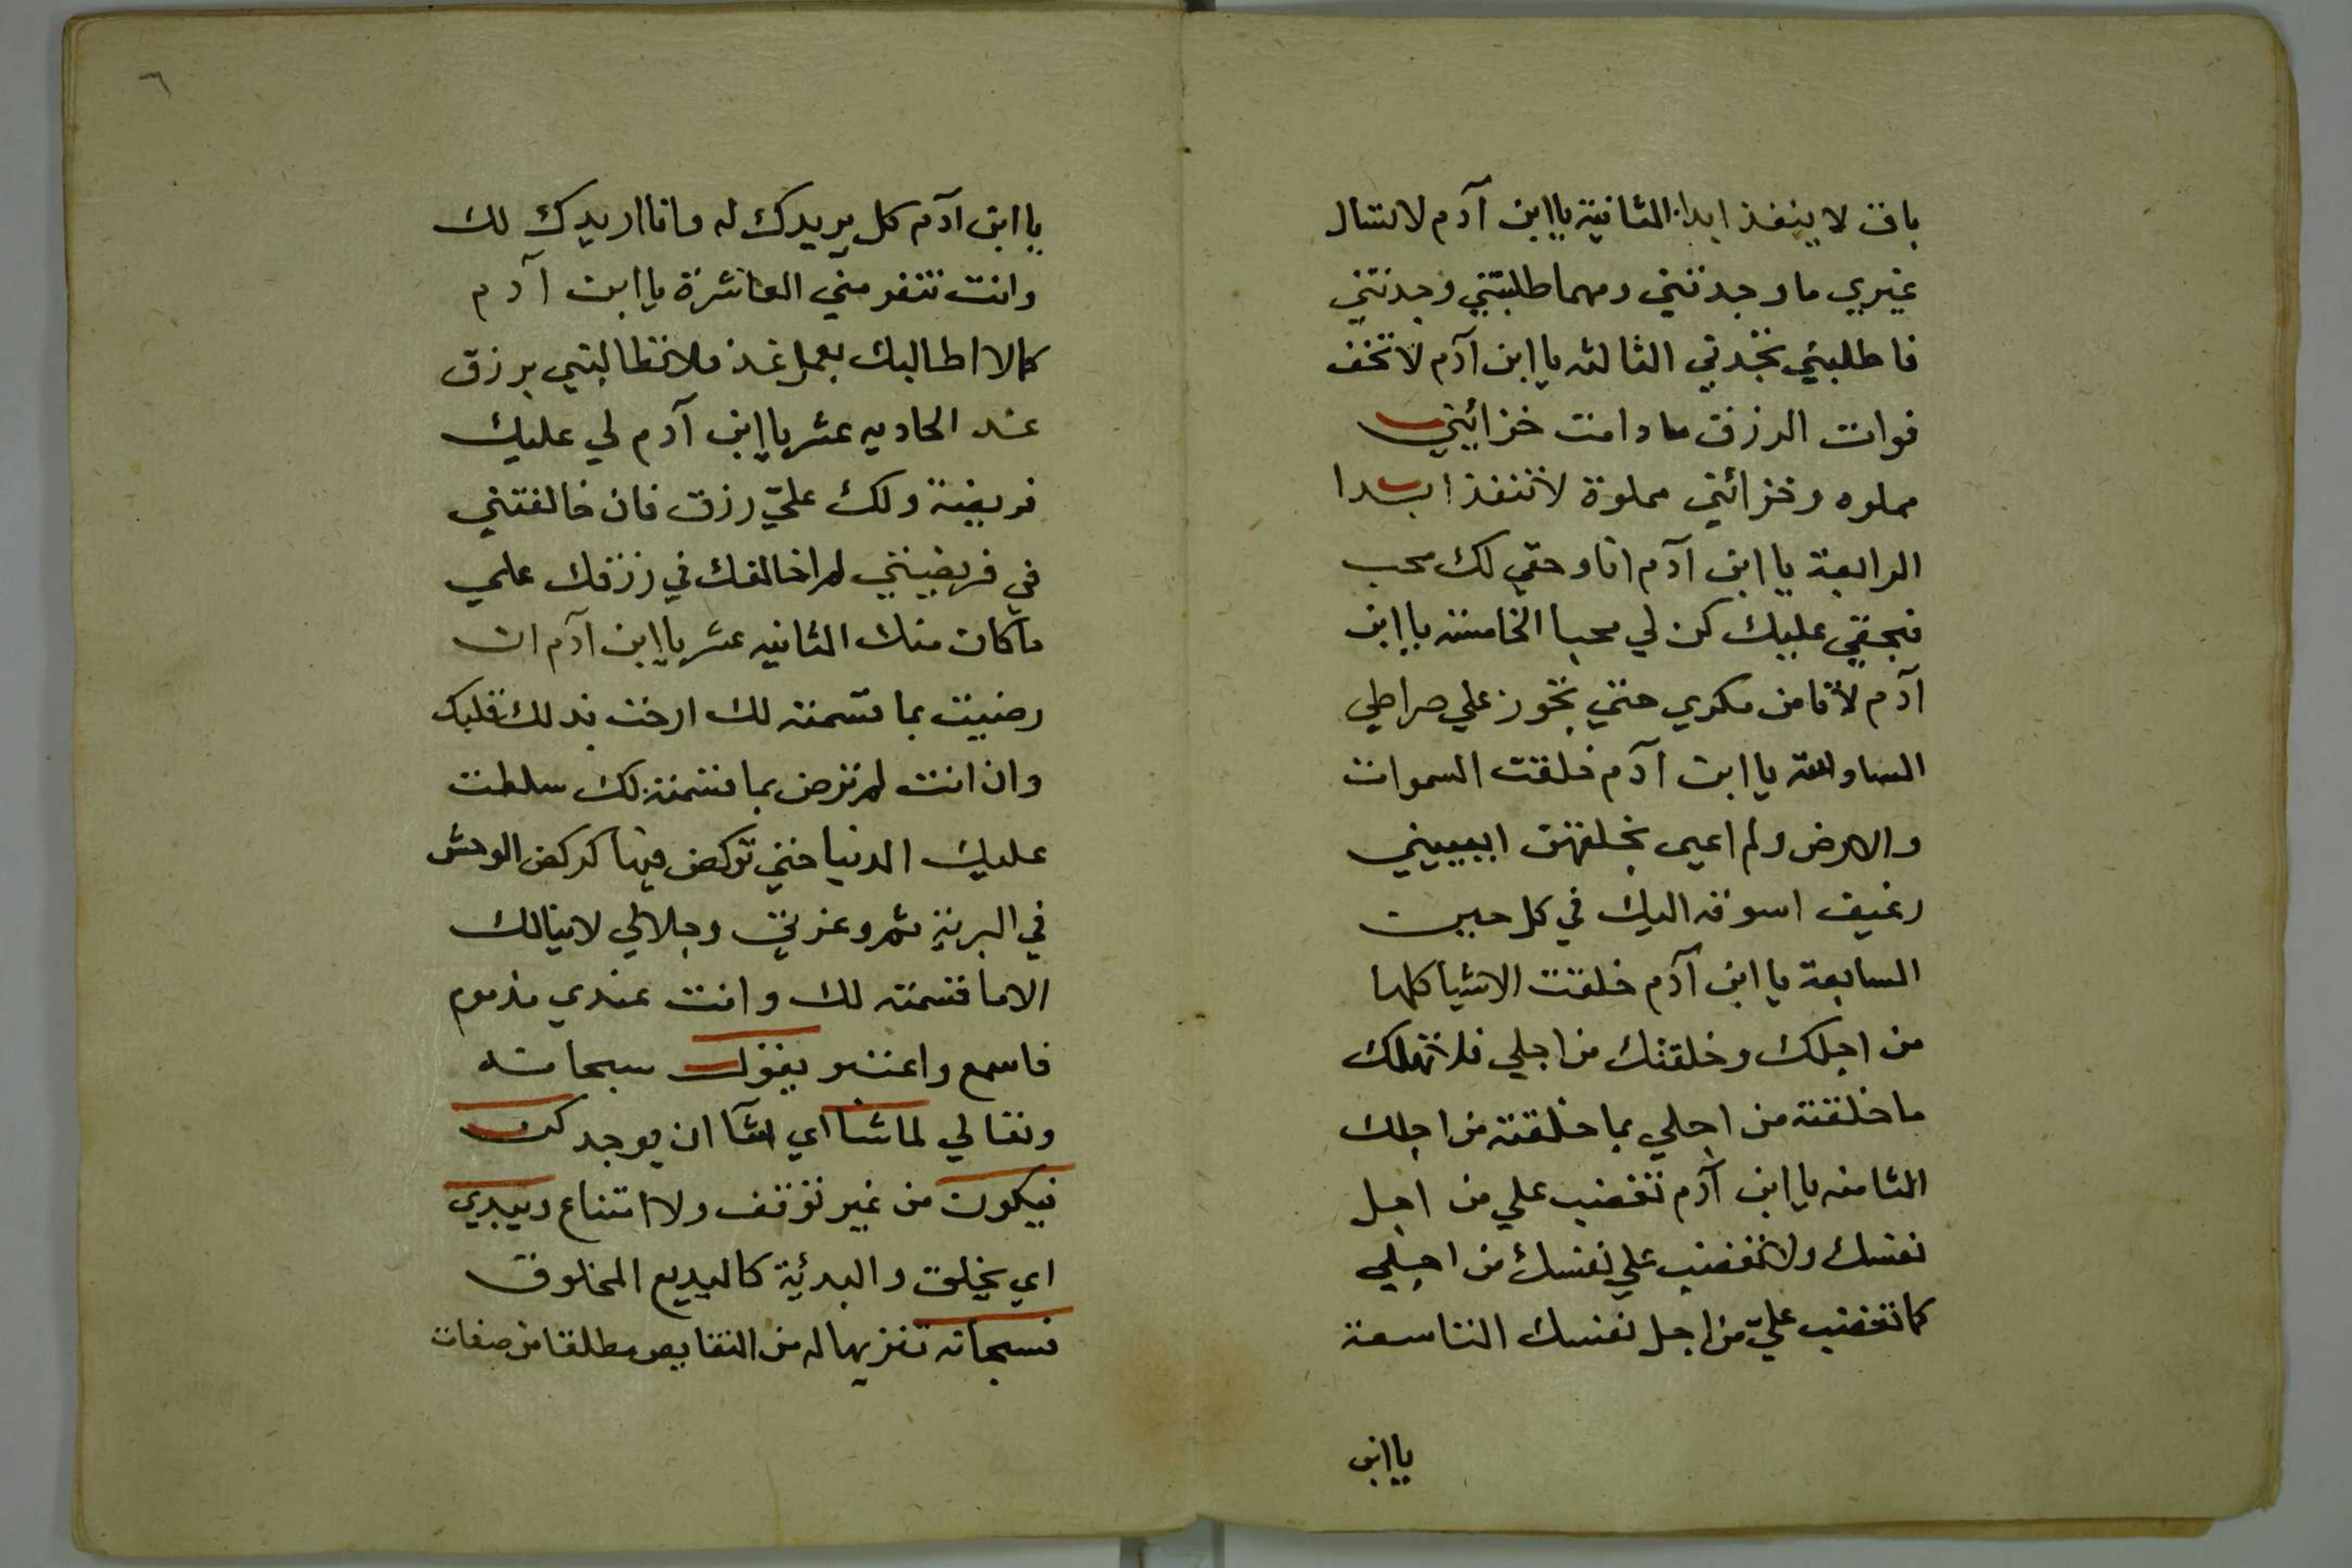 باق لا ينفذ ابدا الثانية يا ابن آدم لا تسال
غيري ما وجدتني ومهما طلبتني وجدتني
فاطلبني تجدني الثالثه يا ابن آدم لا تخف
فوات الرزق ما دامت خزائني
مملوه وخزائني مملوة لا تنفذ ابدا
الرابعة يا ابن آدم انا وحقي لك محب
فبحقي عليك كن لي محبا الخامسه يا ابن
آدم لا تامن مكري حتي تجوز علي صراطي
السادسة يا ابن آدم خلقت السموات
والارض ولم اعيى بخلقهن ايعييني
رغيف اسوقه اليك في كل حين
السابعة يا ابن آدم خلقت الاشيا كلها
من اجلك وخلقتك من اجلي فلا تهلك
ما خلقته من اجلي بما خلقته من اجلك
الثامنه يا ابن آدم تغضب علي من اجل
نفسك ولا تغضب علي نفسك من اجلي
كما تغضب عليّ من اجل نفسك التاسعة
يا ابن
٦
يا ابن آدم كل يريدك له وانا اريدك لك
وانت تنفر مني العاشرة يا ابن آدم
كما لا اطالبك بعمل غد فلا تطالبني برزق
غد الحاديه عشر يا ابن آدم لي عليك
فريضة ولك عليّ رزق فان خالفتني
في فريضيتي لم اخالفك في رزقك علي
ما كان منك الثانيه عشر يا ابن آدم ان
رضيت بما قسمته لك ارحت بذلك قلبك
وان انت لم ترض بما قسمته لك سلطت
عليك الدنيا حتي تركض فيها كركض الوحش
في البرية ثم وعزتي وجلالي لا ينالك
الا ما قسمته لك وانت عندي مذموم
فاسمع واعتبر يقول سبحانه
وتعالي لما شا اي لشآ ان يوجد كن
فيكون من غير توقف ولا امتناع ويبدي
اي يخلق والبدئية كالبديع المخلوق
فسبحانه تنزيها له من النقايص مطلقا من صفات